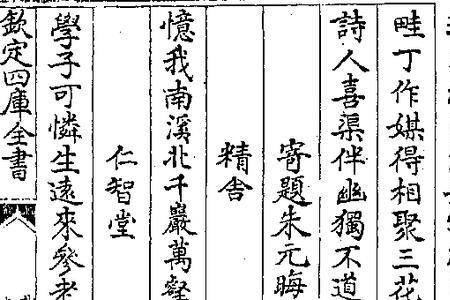 畦丁作媒得相聚三花
詩人喜渠伴幽獨不道
寄題朱元晦
精舍
憶我南溪北千巖萬壑
仁智堂
學子可憐生遠來參老
欽定四庫全書